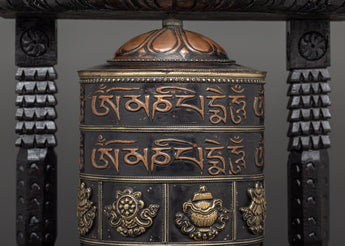 ཨོཾ་མ་ཎི་པདྨེ་ཧཱུྃ
ཨོཾ་མ་ཎི་པདྨེ་ཧཱུྃ